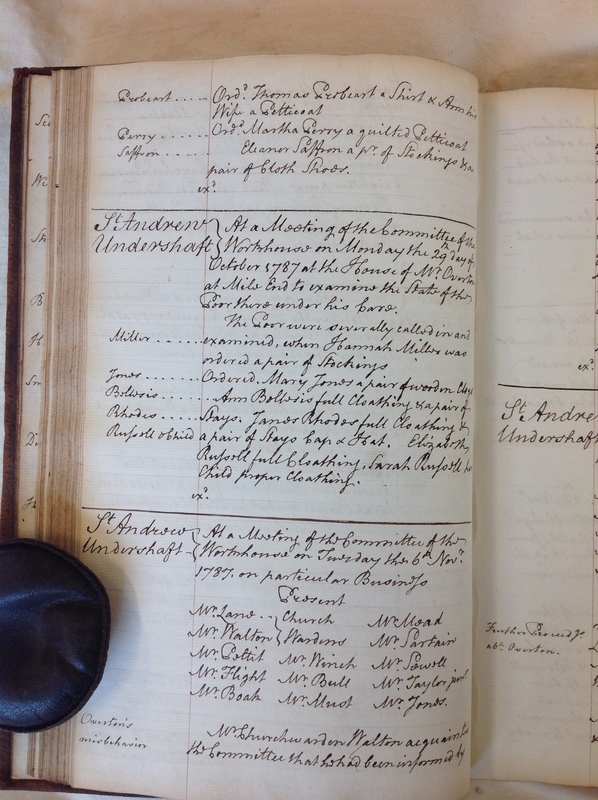 Probeart ..... Ord.d Thomas Probeart a Shirt & Ann his
Wife a Petticoat
Perry ...... Ord.d Martha Perry a quilted Petticoat
Saffron ..... Eleanor Saffron a p.r of Stockings & a
pair of Cloth Shoes.
ex.d
St. Andrew Undershaft } At a Meeting of the Committee of the
Workhouse on Monday the 29th day of
October 1787 at the House of Mr. Overton
at Mile End to examine the State of the
Poor there under his Care.
The Poor were severally called in and
Miller ..... examined, when Hannah Miller was
ordered a pair of Stockings
Jones ....... Ordered Mary Jones a pair of wooden
Ann full Cloathing & a pair of
Rhodes ..... Stays. Jane Rhodes full Cloathing &
Russell & Child a pair of Stays Cap & Hat. Elizabeth
Russell full Cloathing, Sarah Russell her
Child proper Cloathing.
ex.d
St. Andrew Undershaft } At a Meeting of the Committee of the
Workhouse on Tuesday the 6th Nov.r
1787. on particular Business
Present
Mr. Lane .. } Church Mr. Mead
Mr. Walton } Wardens Mr. Sartain
Mr. Pettit Mr. Winch Mr. Sewell
Mr. Flight Mr. Bull Mr. Taylor jun.r
Mr. Boak Mr. Must Mr. Jones.
Overton's
misbehavior
Mr. Churchwarden Walton acquainted
the Committee that he had been informed by
ex.d
St. Andrew
Undershaft
Further Proceed.gs
ab.t Overton.